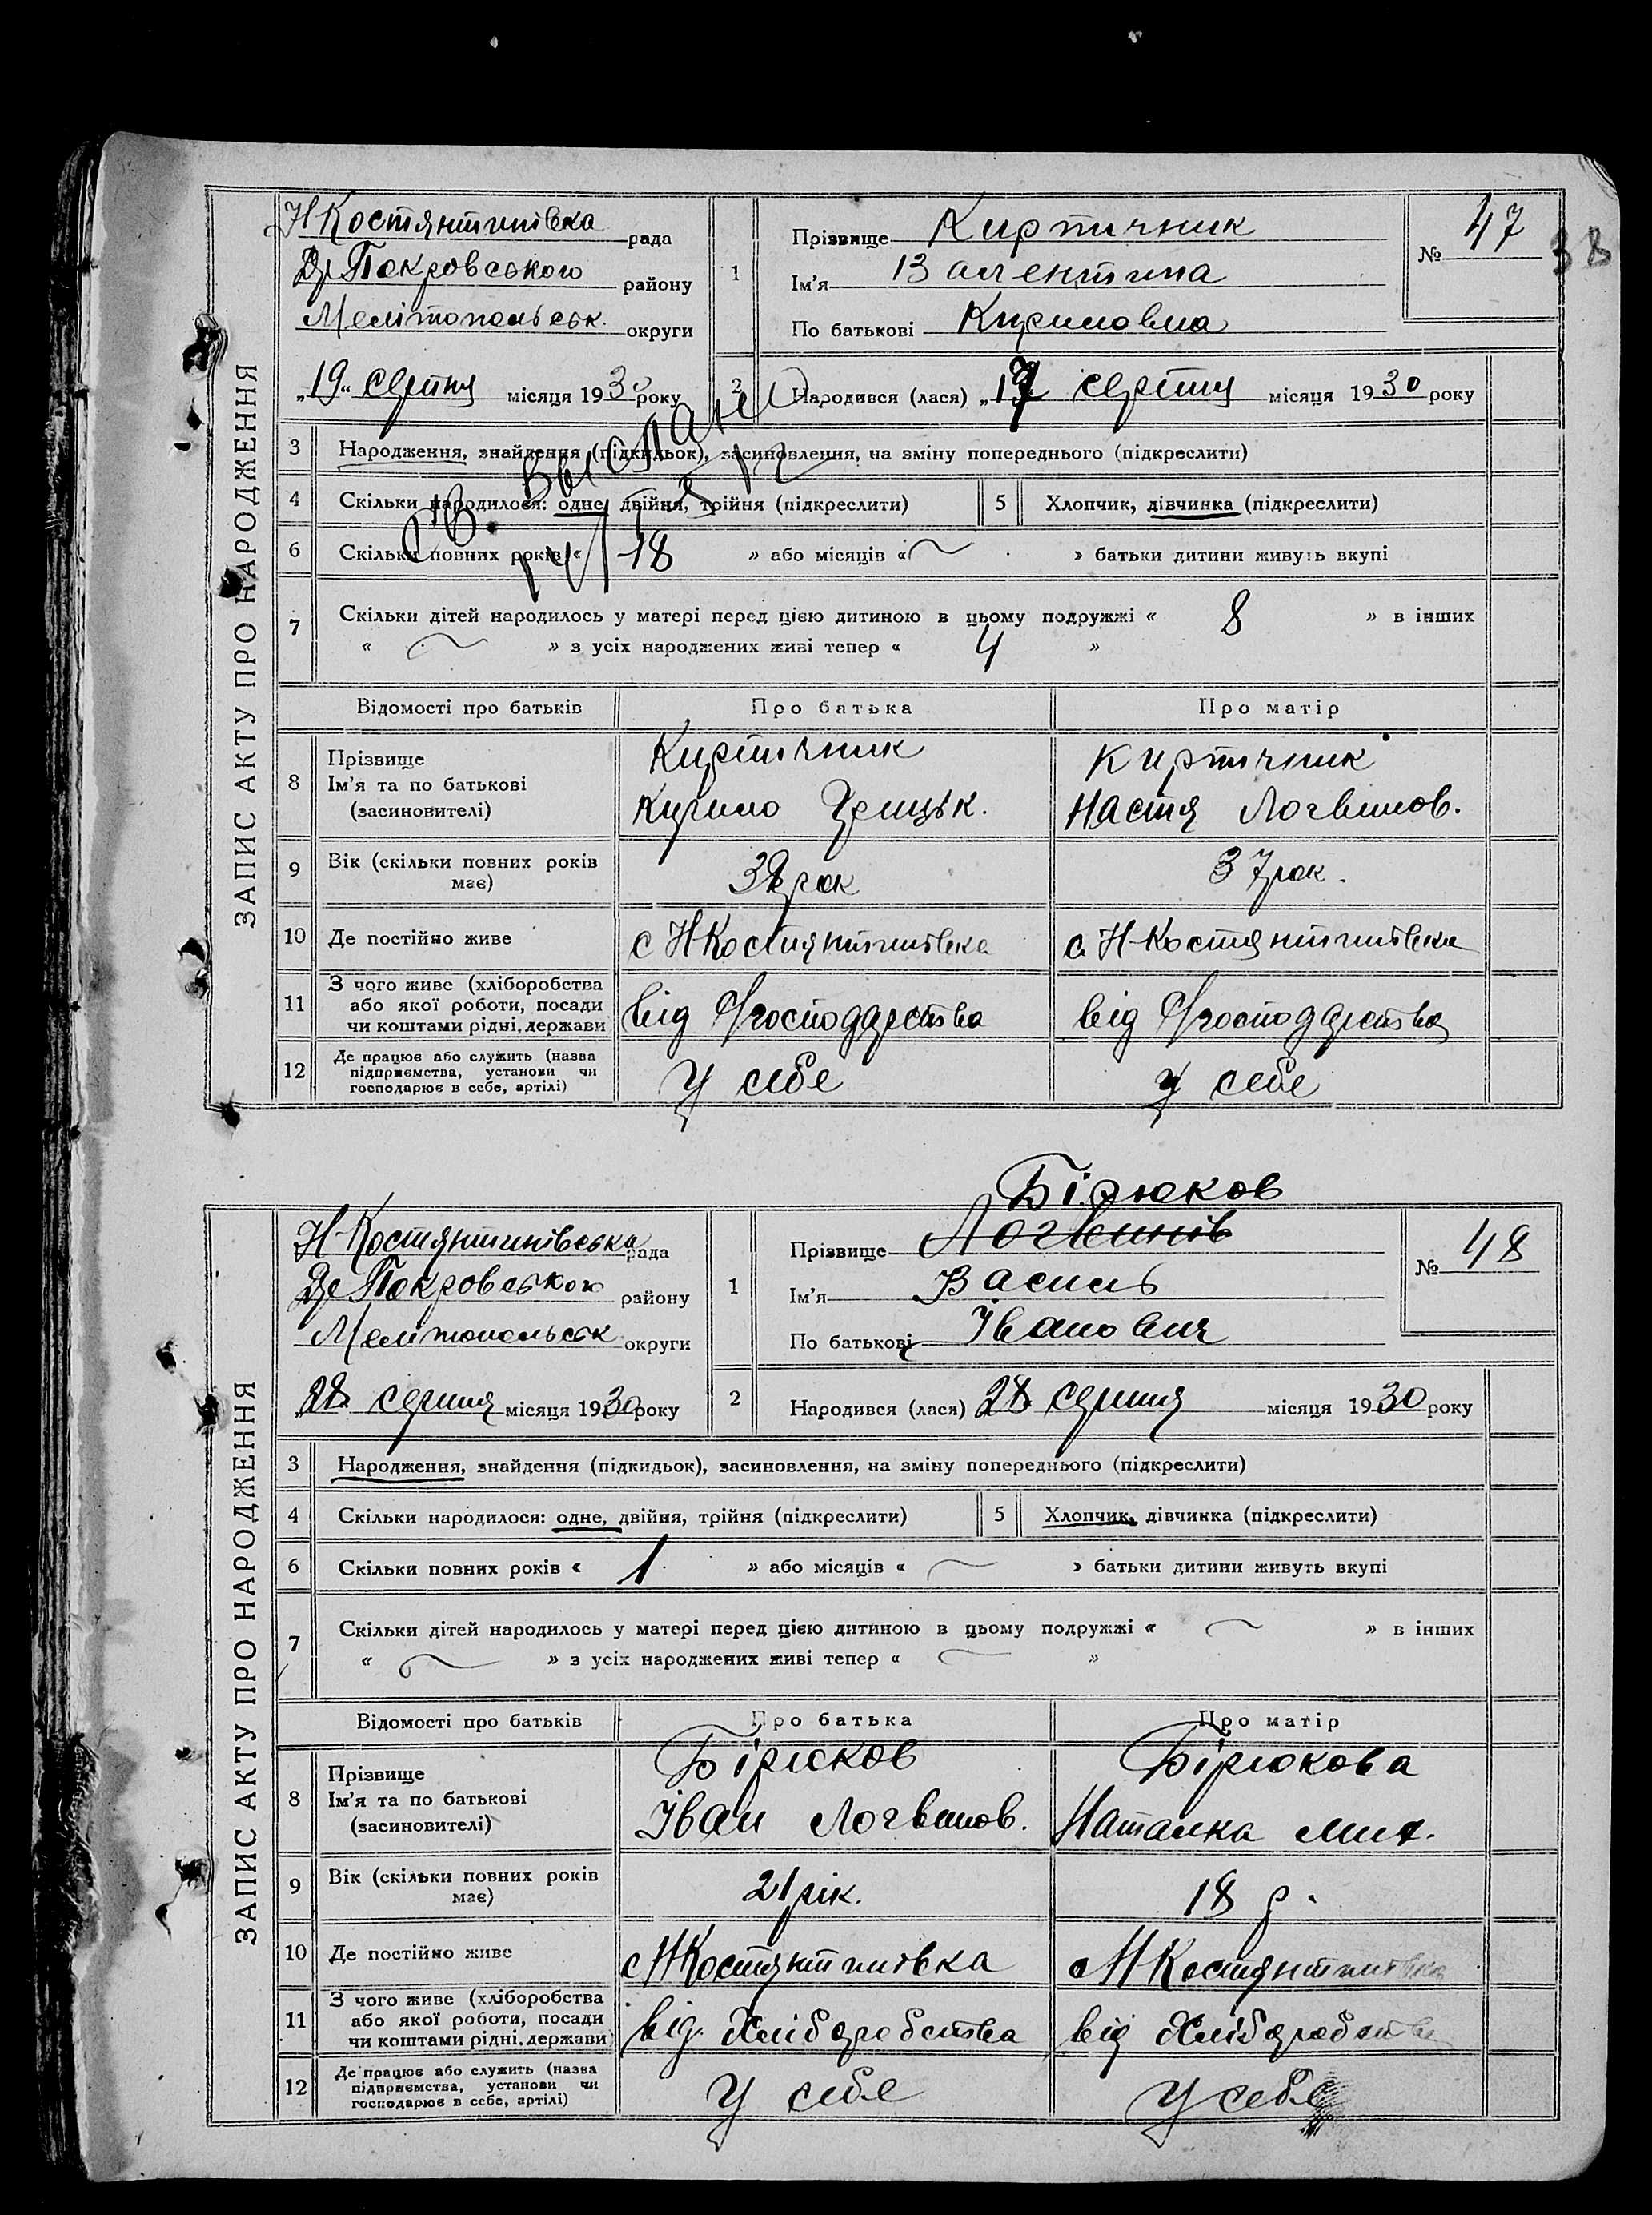 38
ЗАПИС АКТУ ПРО НАРОДЖЕННЯ
Н Костянтинівка рада
Покровського району
Мелітопольськ. округи
„19“ серпня місяця 1930 року
1 Прізвище Кирпичник
Ім'я Валентина
По батькові Кириловна
№ 47
2 Народився (лася) „17 серпня місяця 1930 року
3 Народження, знайдення (підкидьок), засиновлення, на зміну попереднього (підкреслити)
4 Скільки народилося: одне, двійня, трійня (підкреслити) 5 Хлопчик, дівчинка (підкреслити)
6 Скільки повних років « 18 » або місяців « ~ » батьки дитини живуть вкупі
7 Скільки дітей народилось у матері перед цією дитиною в цьому подружжі « 8 » в інших
« ~ » з усіх народжених живі тепер « 4 »
Відомості про батьків Про батька Про матір
8 Прізвище Ім'я та по батькові (засиновителі)
Кирпичник Кирило Грицьк.
Кирпичник Настя Логвинов.
9 Вік (скільки повних років має) 38 рок 37 рок.
10 Де постійно живе с Н Костянтинівка с Н-Костянтинівка
11 З чого живе (хліборобства
або якої роботи, посади
чи коштами рідні, держави
від господарства від господарства
12 Де працює або служить (назва
підприємства, установи чи
господарює в себе, артілі)
У себе у себе
Бірюков
ЗАПИС АКТУ ПРО НАРОДЖЕННЯ
Н-Костянтинівська рада
Покровського району
Мелітопольськ округи
„28 серпня місяця 1930 року
1 Прізвище Логвинів
Ім'я Василь
По батькові Іванович
№ 48
2 Народився (лася) 28 серпня місяця 1930 року
3 Народження, знайдення (підкидьок), засиновлення, на зміну попереднього (підкреслити)
4 Скільки народилося: одне, двійня, трійня (підкреслити) 5 Хлопчик, дівчинка (підкреслити)
6 Скільки повних років « 1 » або місяців « ~ » батьки дитини живуть вкупі
7 Скільки дітей народилось у матері перед цією дитиною в цьому подружжі « ~ » в інших
« ~ » з усіх народжених живі тепер « ~ »
Відомості про батьків Про батька Про матір
8 Прізвище Ім'я та по батькові (засиновителі)
Бірюков Іван Логвинов.
Бірюкова Наталка Мих.
9 Вік (скільки повних років має) 21 рік. 18 р.
10 Де постійно живе с Н Костянтинівка с Н Костянтинівка
11 З чого живе (хліборобства
або якої роботи, посади
чи коштами рідні, держави
від. Хліборобства від Хліборобства
12 Де працює або служить (назва
підприємства, установи чи
господарює в себе, артілі)
У себе У себе